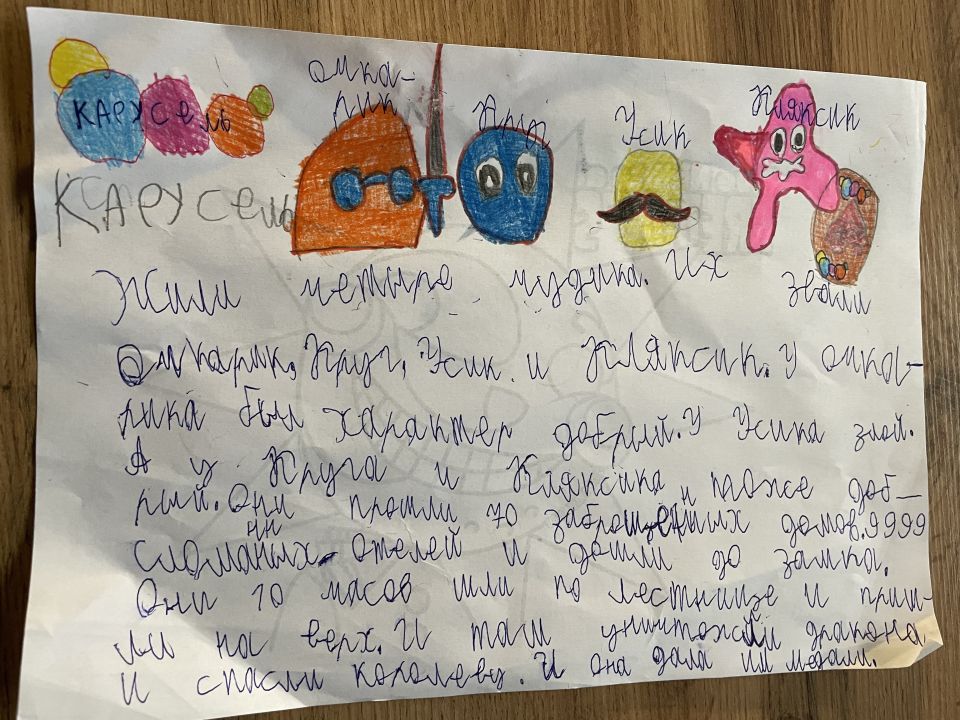 КАРУСЕЛЬ
омка-
рик
Круг
Усик
Кляксик
КАРУСЕЛЬ
Жили четыре чудика. Их звали
Омкарик, Круг, Усик и Кляксик. У омка-
рика был характер добрый. У Усика злой.
А у Круга и Кляксика тоже доб-
рый. Они прошли 70 заброшенных домов. 9999
сломанных отелей и дошли до замка.
Они 10 часов шли по лестнице и приш-
ли на верх. И там уничтожили дракона
и спасли королеву. И она дала им медали.